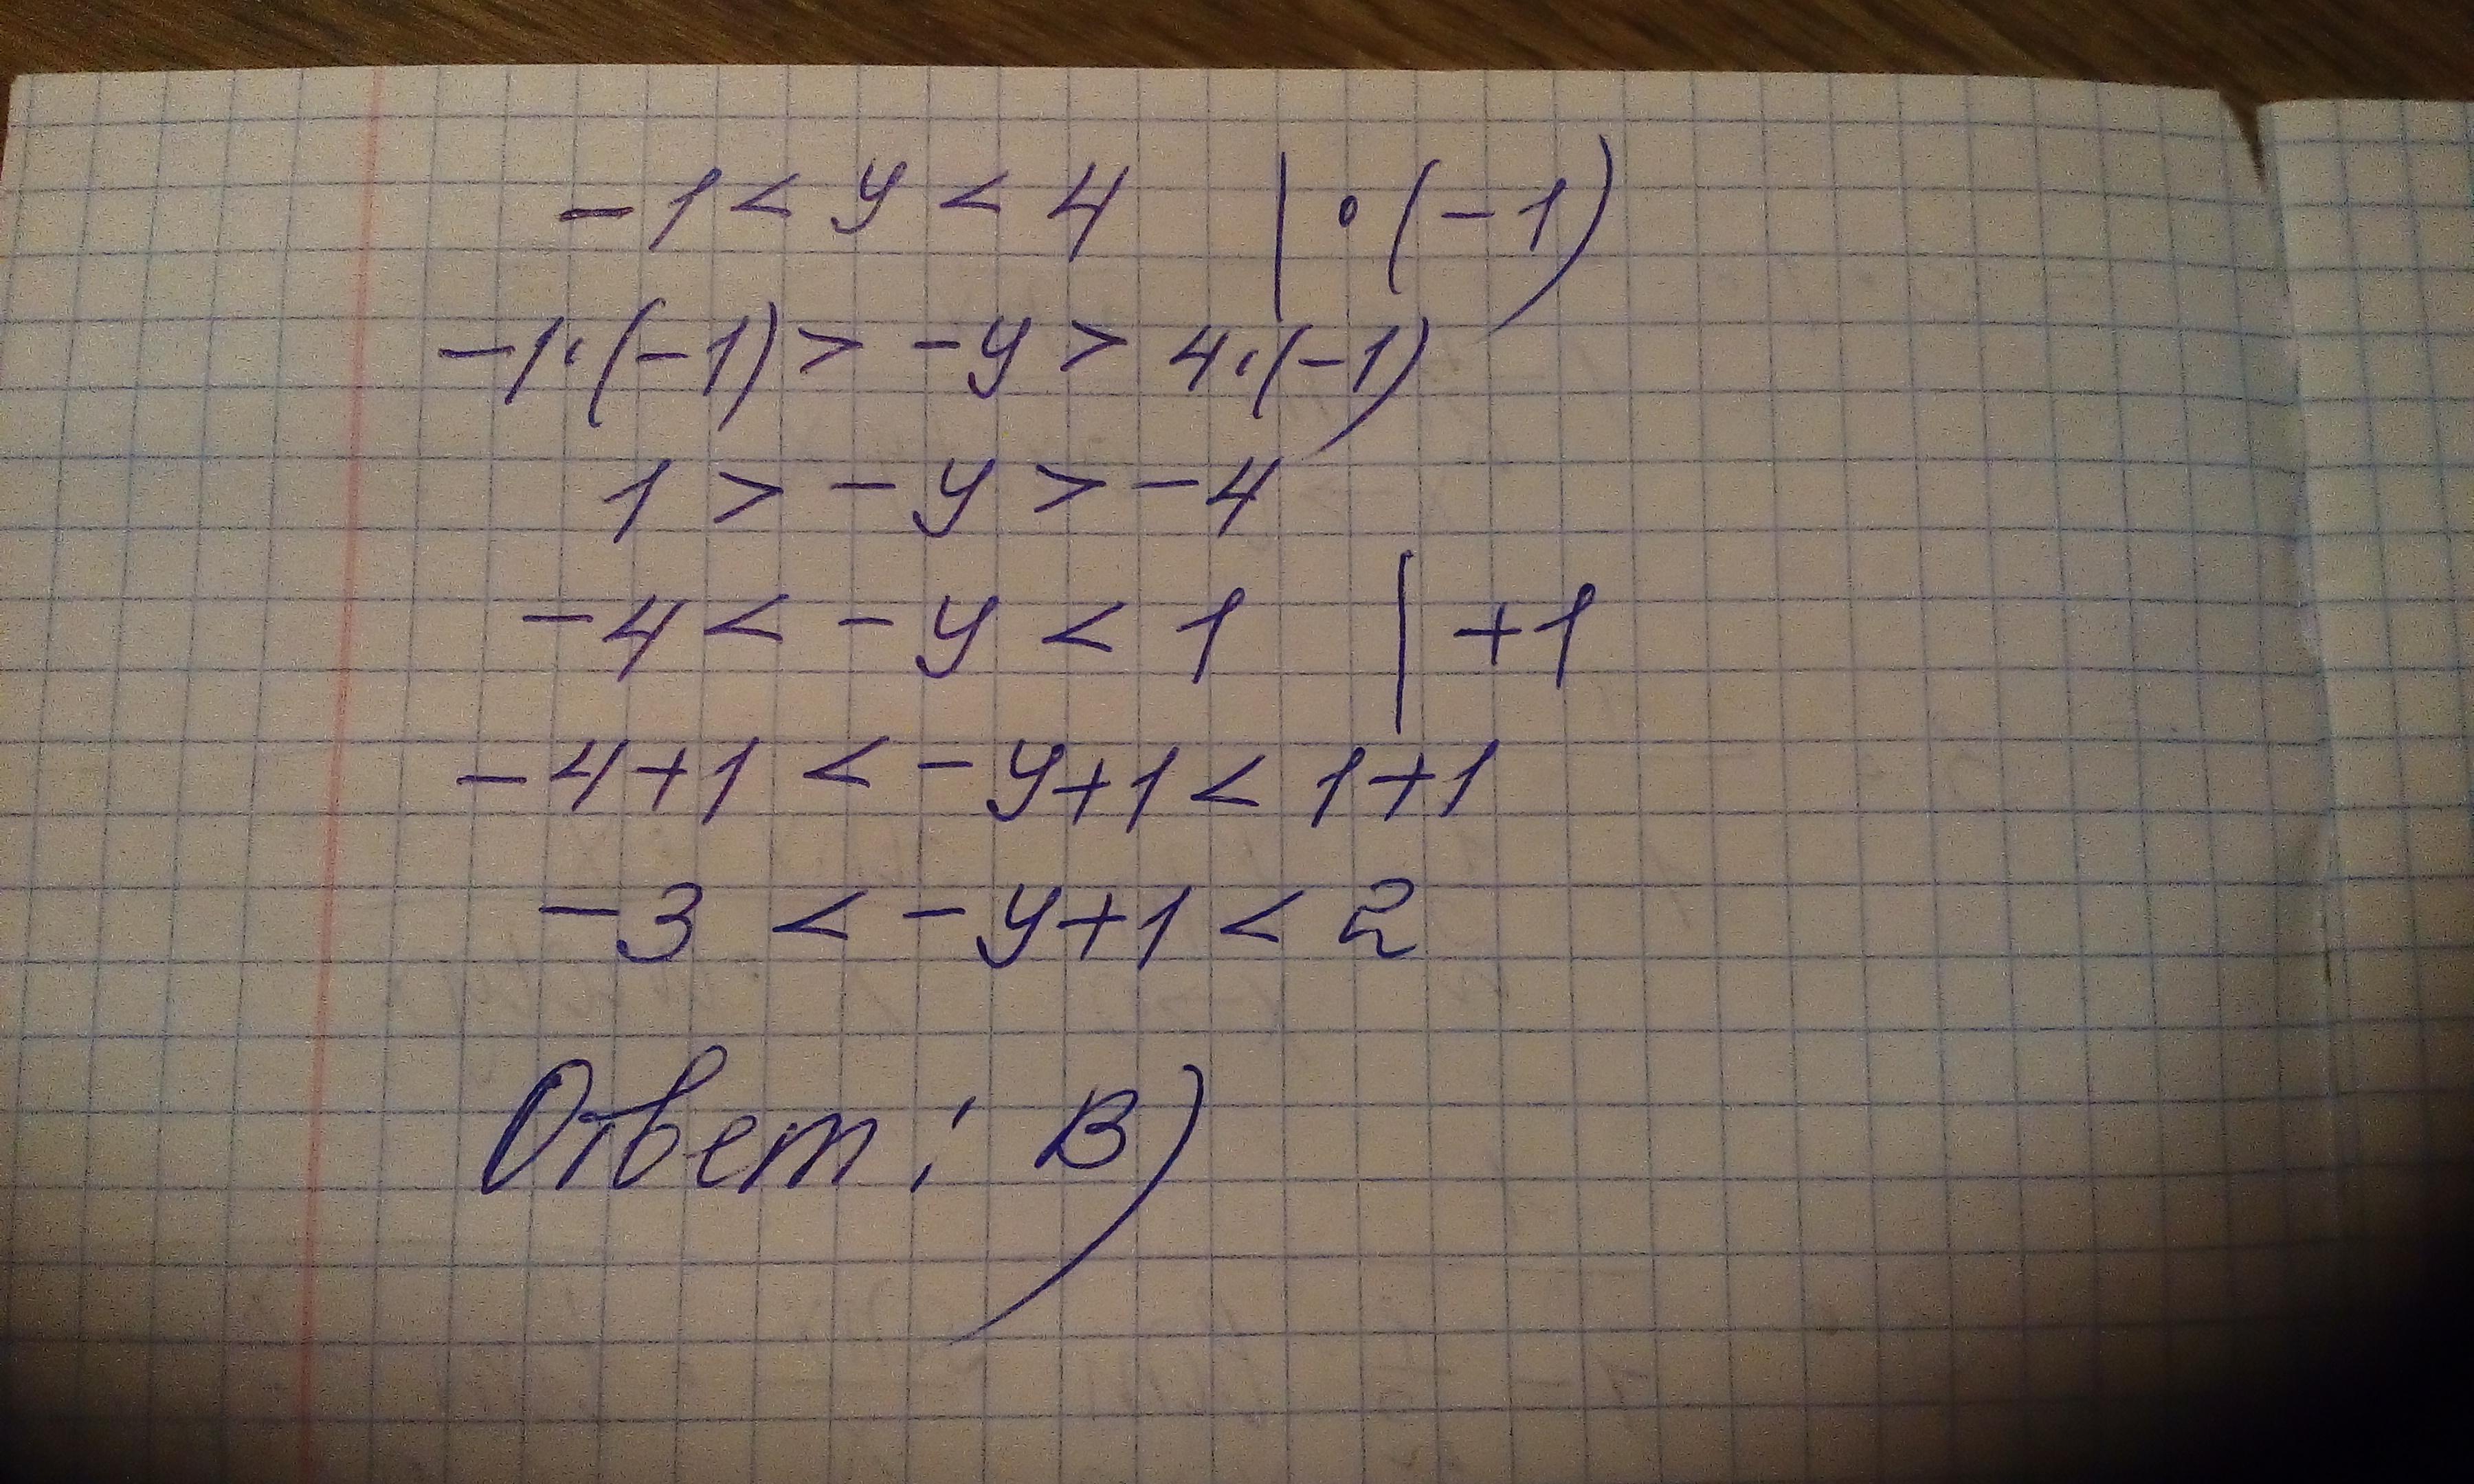 -1 < y < 4 | · (-1)
-1·(-1) > -y > 4·(-1)
1 > -y > -4
-4 < -y < 1 | +1
-4+1 < -y+1 < 1+1
-3 < -y+1 < 2
Ответ: В)